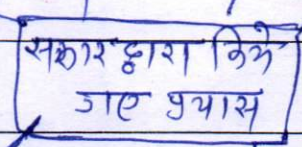 सरकार द्वारा किये
गए प्रयास